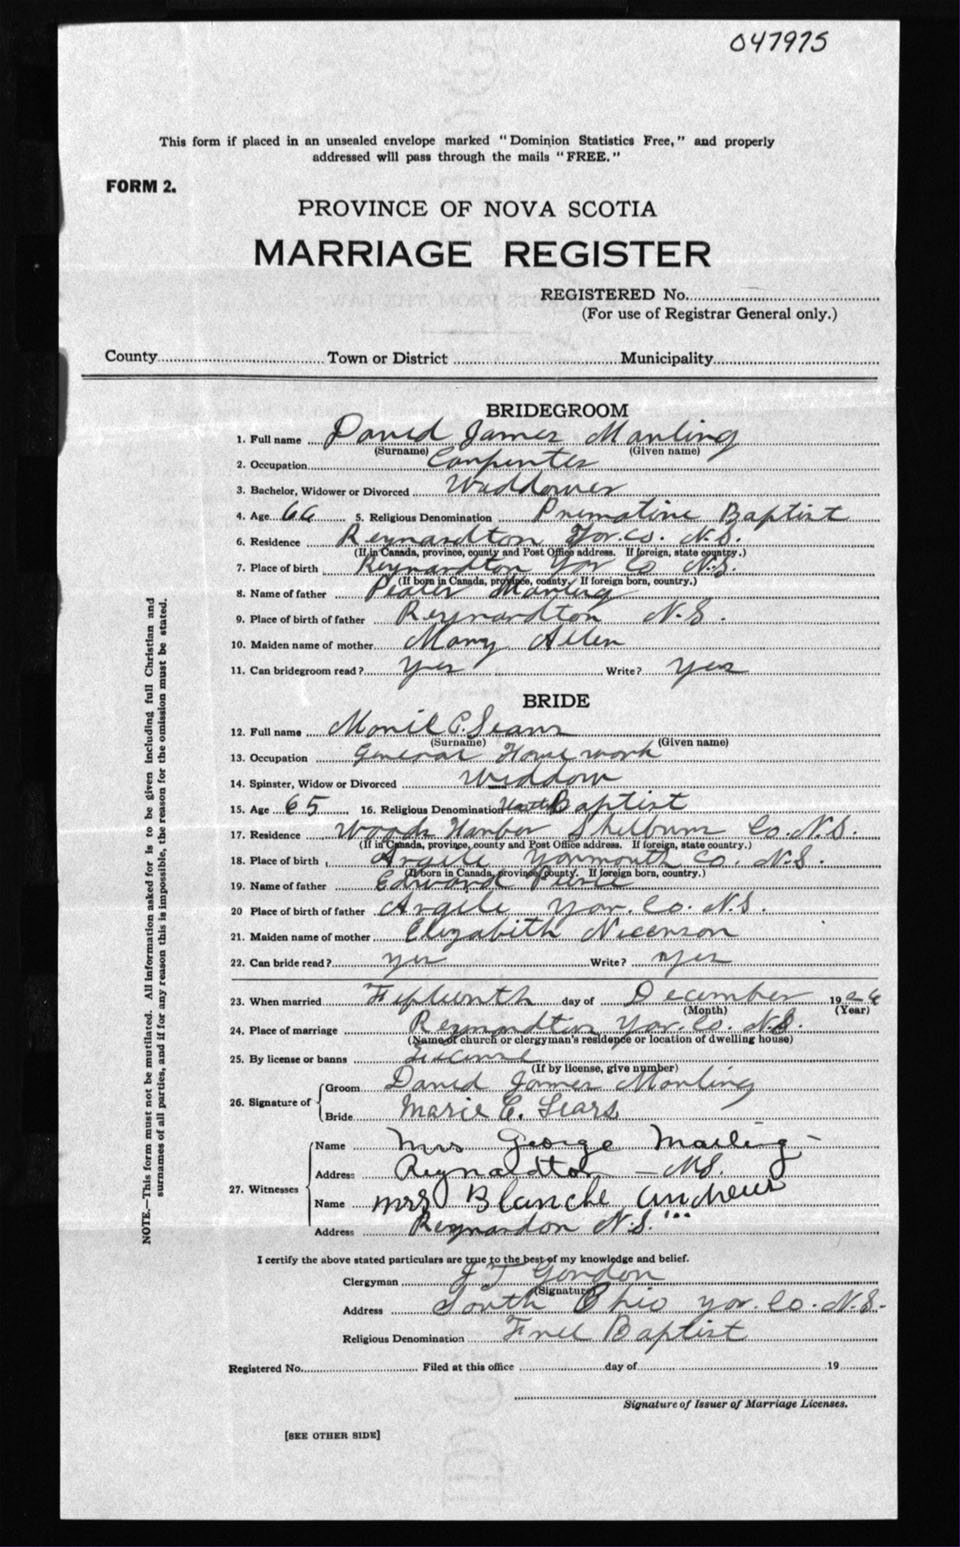 047975
This form if placed in an unsealed envelope marked "Dominion Statistics Free," and properly
addressed will pass through the mails "FREE."
FORM 2.
PROVINCE OF NOVA SCOTIA
MARRIAGE REGISTER
REGISTERED No.
(For use of Registrar General only.)
County Town or District Municipality
BRIDEGROOM
1. Full name David James Manling
(Surname) (Given name)
2. Occupation Carpenter
3. Bachelor, Widower or Divorced Widdower
4. Age 66 5. Religious Denomination Premative Baptist
6. Residence Reynardton Yor. Co. N.S.
(If in Canada, province, county and Post Office address. If foreign, state country.)
7. Place of birth Reynardton Yor Co N.S.
(If born in Canada, province, county. If foreign born, country.)
8. Name of father Peater Manling
9. Place of birth of father Reynardton N.S.
10. Maiden name of mother Mary Allen
11. Can bridegroom read? yes Write? yes
BRIDE
12. Full name C. Sears
(Surname) (Given name)
13. Occupation General Housework
14. Spinster, Widow or Divorced Widdow
15. Age 65 16. Religious Denomination Baptist
17. Residence Woods Harbor Shelburn Co. N.S.
(If in Canada, province, county and Post Office address. If foreign, state country.)
18. Place of birth Argile Yarmouth Co. N.S.
(If born in Canada, province, county. If foreign born, country.)
19. Name of father Edward
20 Place of birth of father Argile Yor. Co. N.S.
21. Maiden name of mother Elizabith Nicenson
22. Can bride read? yes Write? yes
23. When married Fifteenth day of December 1926
(Month) (Year)
24. Place of marriage Reynardton Yor. Co. N.S.
(Name of church or clergyman's residence or location of dwelling house)
25. By license or banns
(If by license, give number)
26. Signature of
Groom David James Manling
Bride Marie C. Sears
27. Witnesses
Name Mrs George Maling
Address Reynardton N.S.
Name Mrs Blanche Andrews
Address Reynardon N.S.
I certify the above stated particulars are true to the best of my knowledge and belief.
Clergyman J T Gordon
(Signature)
Address South Ohio Yor. Co. N.S.
Religious Denomination Free Baptist
Registered No. Filed at this office day of 19
Signature of Issuer of Marriage Licenses.
[SEE OTHER SIDE]
NOTE.—This form must not be mutilated. All information asked for is to be given including full Christian and
surnames of all parties, and if for any reason this is impossible, the reason for the omission must be stated.